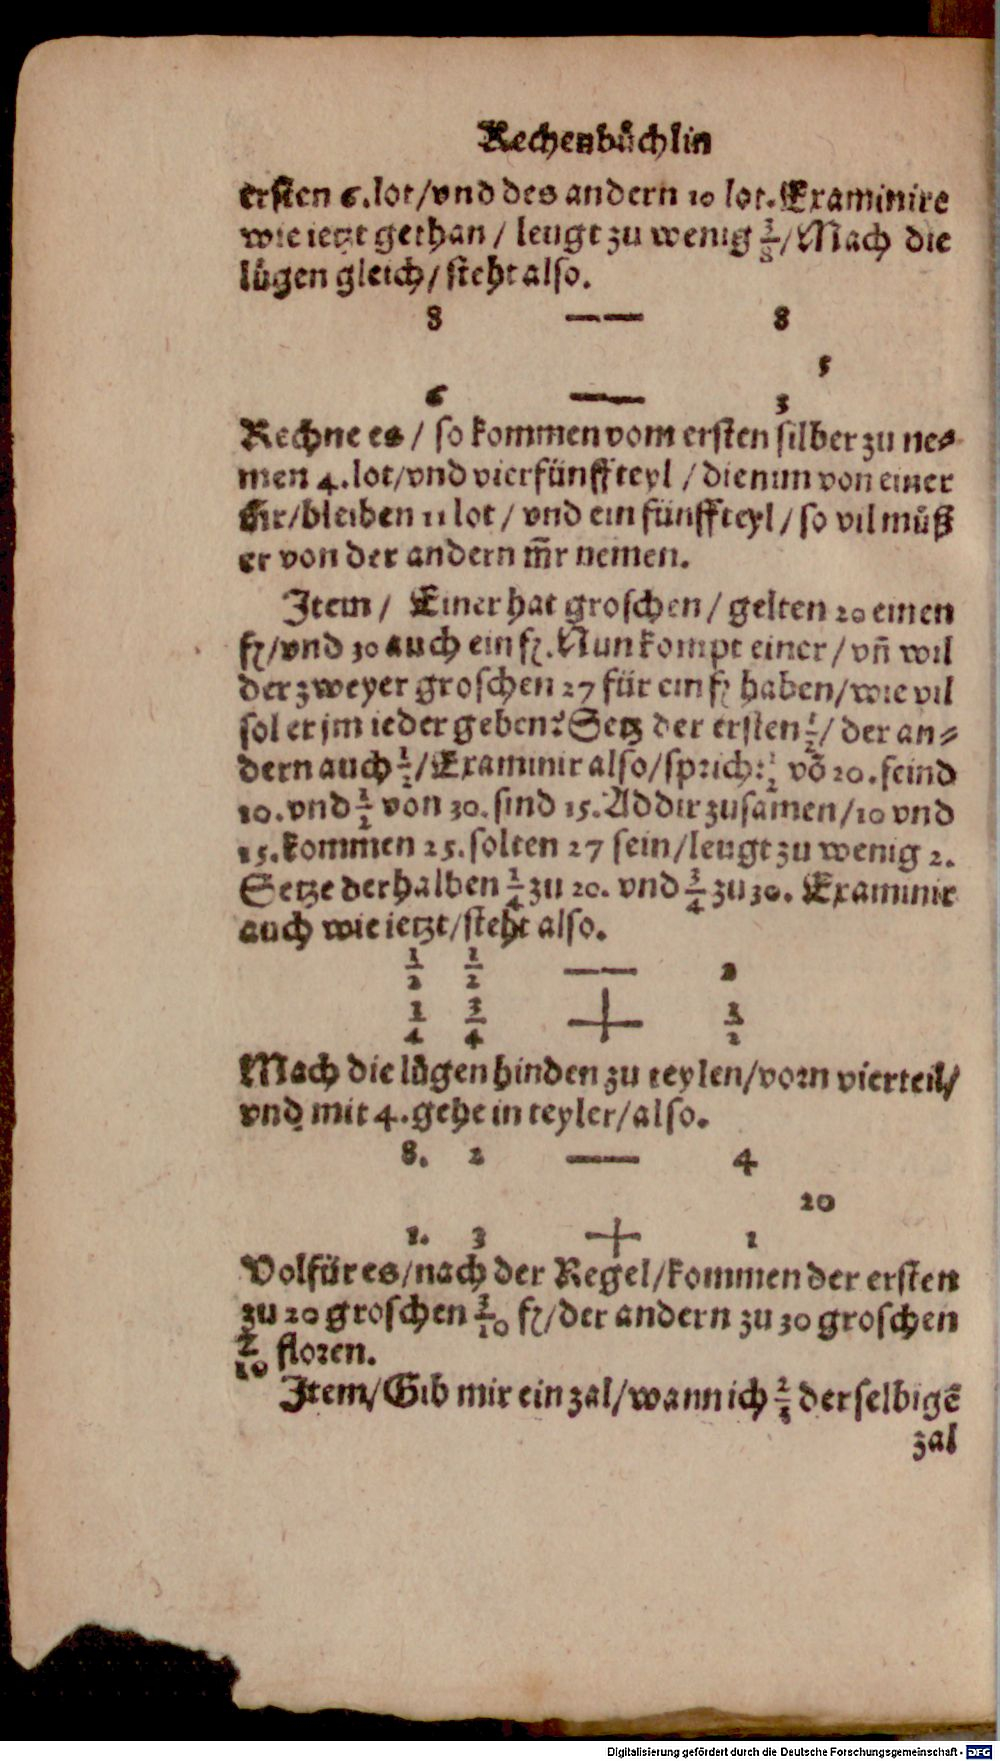 Rechenbuͤchlin
ersten 6. lot/vnd des andern 10 lot. Examinire
wie ietzt gethan / leugt zu wenig 3/8/Mach die
luͤgen gleich/ steht also.
8 —— 8
5
6 —— 3
Rechne es / so kommen vom ersten silber zu ne⸗
men 4. lot/vnd vier fünffteyl / die nim von einer
/bleiben 11 lot / vnd ein fünffteyl/ so vil muͤß
er von der andern m̃r nemen.
Item / Einer hat groschen / gelten 20 einen
fl/vnd 30 auch ein fl. Nun kompt einer/ vñ wil
der zweyer groschen 27 für ein fl haben/wie vil
sol er jm ieder geben? Setz der ersten 1/2/ der an⸗
dern auch 1/2/Examinir also/sprich: 1/2 võ 20. seind
10. vnd 1/2 von 30. sind 15. Addir zusamen/10 vnd
15. kommen 25. solten 27 sein/leugt zu wenig 2.
Setze derhalben 1/4 zu 20. vnd 3/4 zu 30. Examinir
auch wie ietzt/steht also.
1/2 1/2 —— 2
1/4 3/4 + 1/2
Mach die luͤgen hinden zu teylen/vorn vierteil/
vnd mit 4. gehe in teyler/also.
2 —— 4
20
1. 3 + 1
Volfür es/nach der Regel/kommen der ersten
zu 20 groschen 3/10 fl/der andern zu 30 groschen
7/10 floren.
Item/ Gib mir ein zal/wann ich 2/3 der selbigẽ
zal
Digitalisierung gefördert durch die Deutsche Forschungsgemeinschaft - DFG